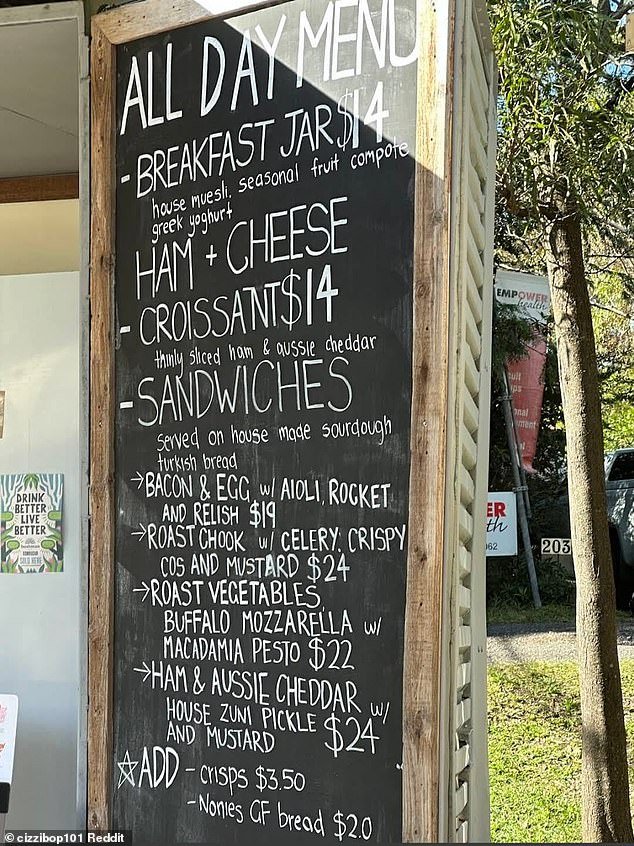 ALL DAY MENU
- BREAKFAST JAR $14
house muesli, seasonal fruit compote
greek yoghurt
HAM + CHEESE
- CROISSANT $14
thinly sliced ham & aussie cheddar
- SANDWICHES
served on house made sourdough
turkish bread
→ BACON & EGG w/ AIOLI, ROCKET
AND RELISH $19
→ ROAST CHOOK w/ CELERY, CRISPY
COS AND MUSTARD $24
→ ROAST VEGETABLES,
BUFFALO MOZZARELLA w/
MACADAMIA PESTO $22
→ HAM & AUSSIE CHEDDAR w/
HOUSE ZUNI PICKLE
AND MUSTARD $24
☆ ADD - crisps $3.50
- Nonies GF bread $2.0
DRINK
BETTER
LIVE
BETTER
EMPOWER
health
ER
th
062
203
© cizzibop101 Reddit